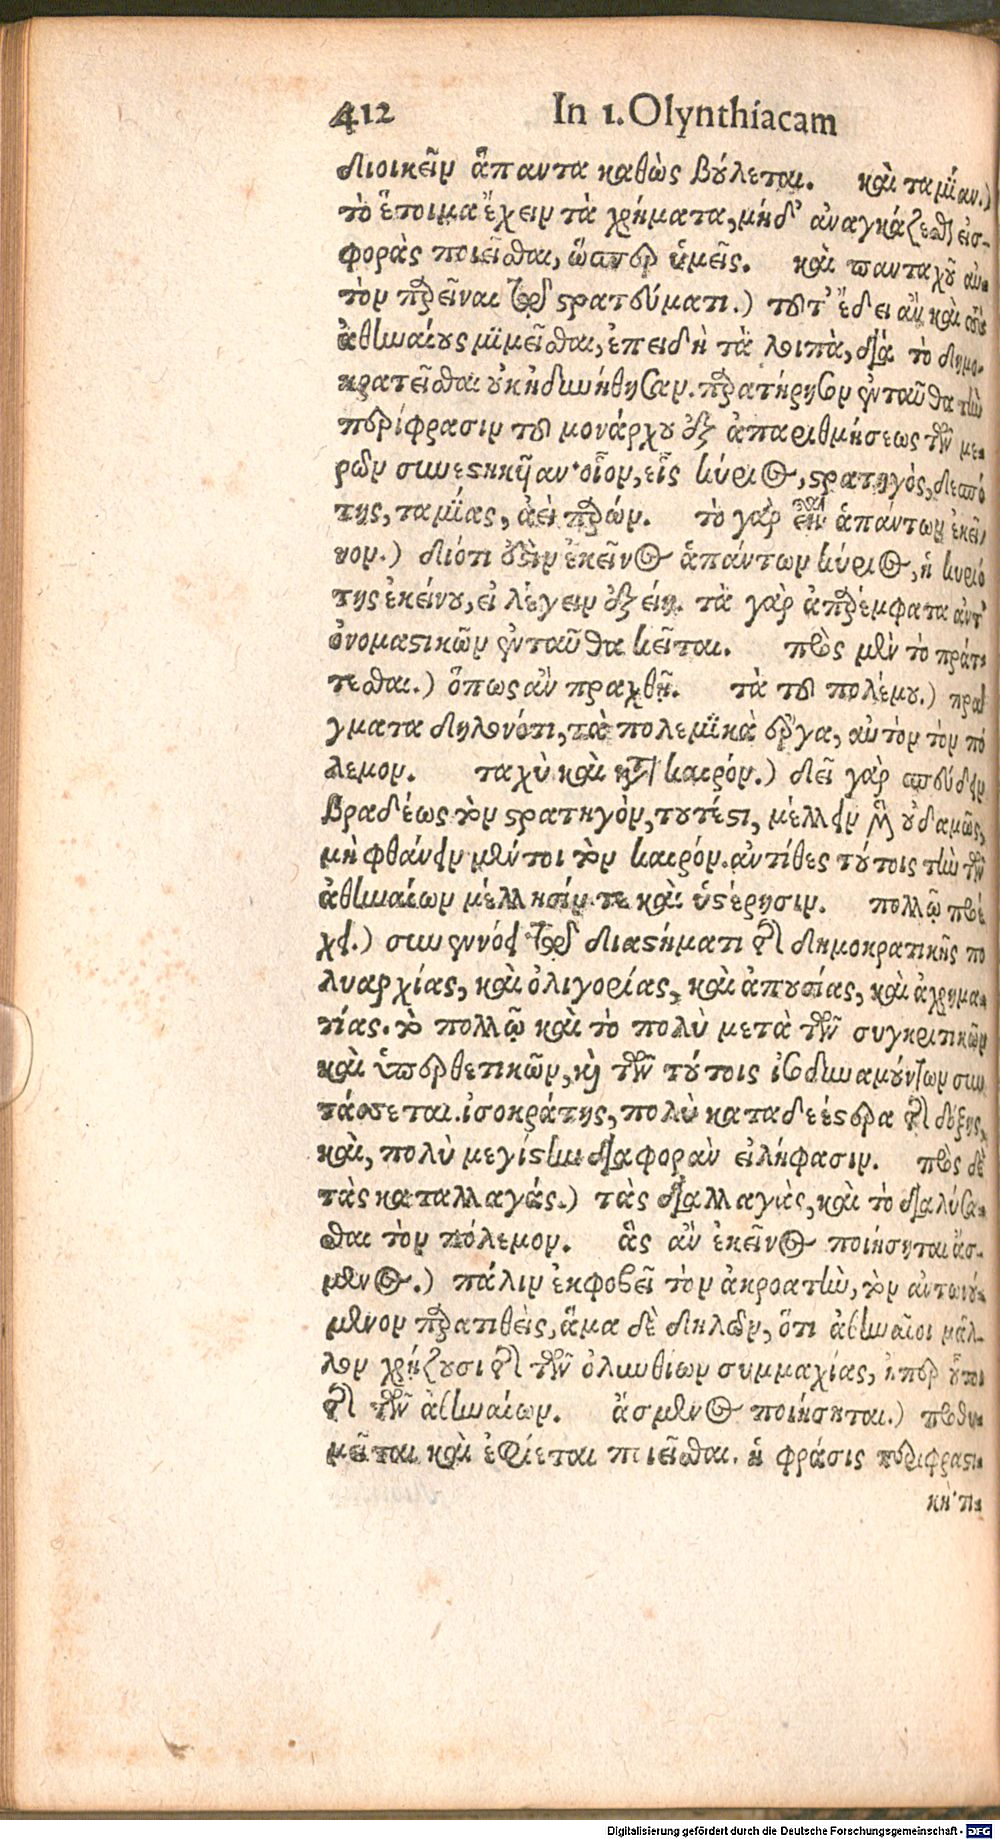 412 In 1. Olynthiacam
διοικεῖν ἅπαντα καθὼς βούλεται. καὶ ταμίαν.)
τὸ ἕτοιμα ἔχειν τὰ χρήματα, μηδ' ἀναγκάζεσθαι εἰσ-
φορὰς ποιεῖσθαι, ὥσπερ ὑμεῖς. καὶ πανταχοῦ αὐ-
τὸν παρεῖναι τῷ στρατεύματι.) τοῦτ' ἔδει ἂν καὶ τοὺς
ἀθηναίους μιμεῖσθαι, ἐπειδὴ τὰ λοιπὰ, διὰ τὸ δημο-
κρατεῖσθαι οὐκ ἠδυνήθησαν. παρατήρησον ἐνταῦθα τὴν
περίφρασιν τοῦ μονάρχου ἐξ ἀπαριθμήσεως τῶν με-
ρῶν συνεστηκυῖαν· οἷον, εἷς κύριος, στρατηγὸς, δεσπό
της, ταμίας, ἀεὶ παρών. τὸ γὰρ εἶναι ἁπάντων ἐκεῖ-
νον.) διότι ἐστὶν ἐκεῖνος ἁπάντων κύριος, ἡ κυριό
της ἐκείνου, εἰ λέγειν ἐξείη. τὰ γὰρ ἀπαρέμφατα ἀντ'
ὀνομαστικῶν ἐνταῦθα κεῖται. πρὸς μὲν τὸ πράτ-
τεσθαι.) ὅπως ἂν πραχθῇ. τὰ τοῦ πολέμου.) πρά
γματα δηλονότι, τὰ πολεμικὰ ἔργα, αὐτὸν τὸν πό
λεμον. ταχὺ καὶ κατὰ καιρόν.) δεῖ γὰρ σπεύδειν
βραδέως τὸν στρατηγὸν, τουτέστι, μέλλειν μὲν οὐδαμῶς,
μὴ φθάνειν μέντοι τὸν καιρόν. ἀντίθες τούτοις τὴν τῶν
ἀθηναίων μέλλησίν τε καὶ ὑστέρησιν. πολλῷ προέ
χει.) συνεννόει τῷ διαστήματι τῆς δημοκρατικῆς πο
λυαρχίας, καὶ ὀλιγορίας, καὶ ἀπουσίας, καὶ ἀχρημα-
τίας. τὸ πολλῷ καὶ τὸ πολὺ μετὰ τῶν συγκριτικῶν
καὶ ὑπερθετικῶν, καὶ τῶν τούτοις ἰσοδυναμούντων συν
τάσσεται. ἰσοκράτης, πολὺ καταδεέστερα τῆς δόξης,
καὶ, πολὺ μεγίστην διαφορὰν εἰλήφασιν. πρὸς δὲ
τὰς καταλλαγάς.) τὰς διαλλαγὰς, καὶ τὸ διαλύσα-
σθαι τὸν πόλεμον. ἃς ἂν ἐκεῖνος ποιήσηται ἄσ-
μενος.) πάλιν ἐκφοβεῖ τὸν ἀκροατὴν, τὸν ἀντωνού-
μενον παρατιθεὶς, ἅμα δὲ δηλῶν, ὅτι ἀθηναῖοι μᾶλ-
λον χρῄζουσι τῆς τῶν ὀλυνθίων συμμαχίας, ἤπερ οὗτοι
τῆς τῶν ἀθηναίων. ἄσμενος ποιήσηται.) προθυ-
μεῖται καὶ ἐφίεται ποιεῖσθαι. ἡ φράσις περιφραστι-
κή· πι-